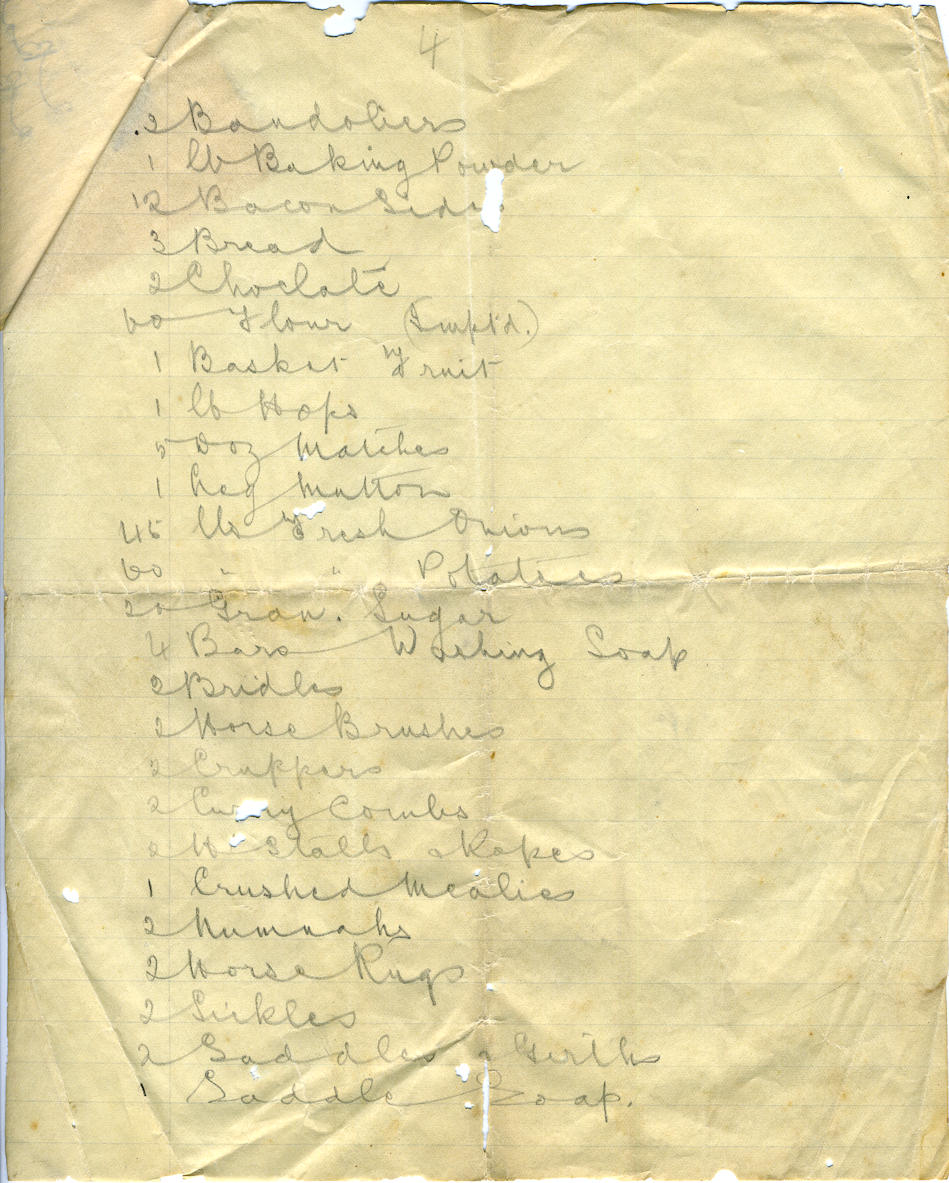 4
2 Bandoliers
1 lb Baking Powder
12 Bacon Sides
3 Bread
2 Choclate
60 Flour (Impt'd.)
1 Basket Fruit
1 lb Hops
5 Doz Matches
1 Leg Mutton
45 lbs Fresh Onions
60 " " Potatoes
20 Gran. Sugar
4 Bars Washing Soap
2 Bridles
2 Horse Brushes
2 Cruppers
2 Curry Combs
2 H Stalls & Ropes
1 Crushed Mealies
2 Numnahs
2 Horse Rugs
2 Sickles
2 Saddles & Girths
1 Saddle Soap.